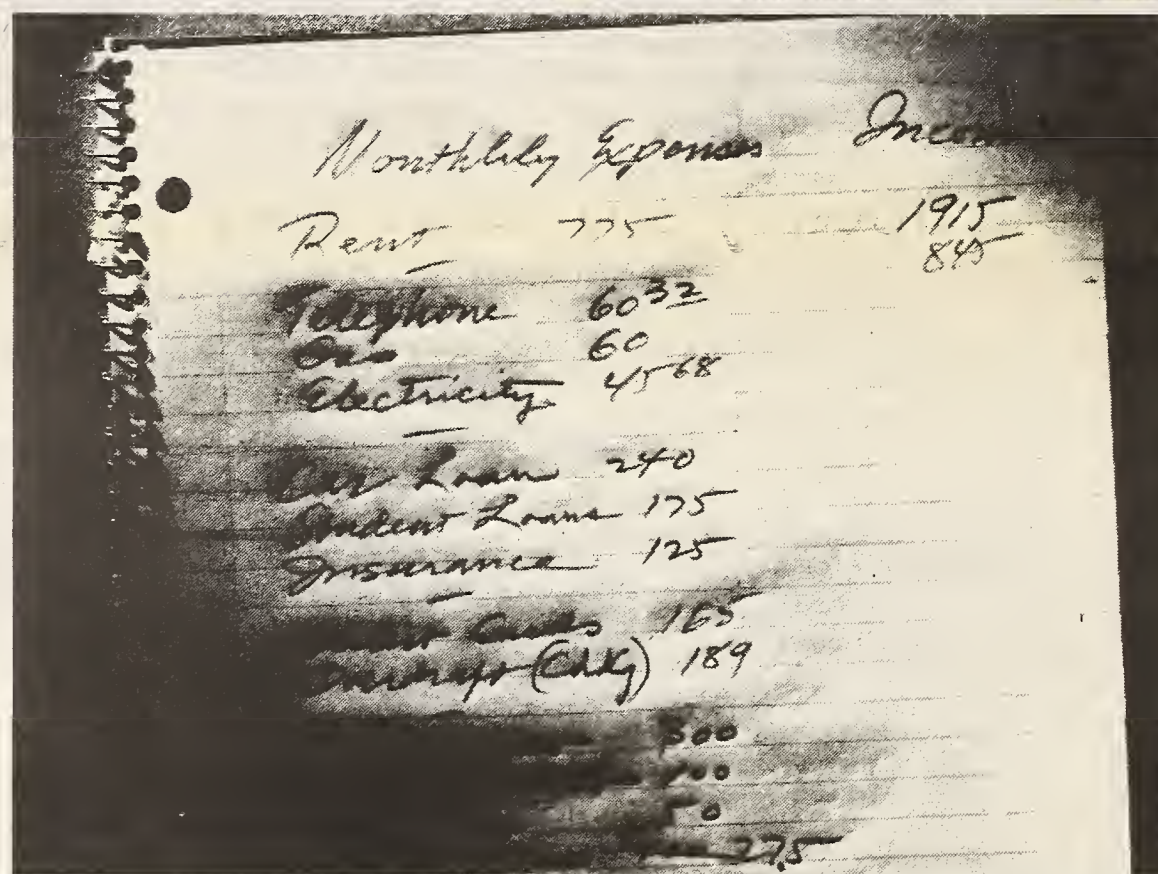 Monthlily Expenses Inco
Rent 775 1915
845
Telephone 60 32
Gas 60
Electricity 45 68
Car Loan 240
Student Loans 175
Insurance 125
Cards 165
Overdraft (Chkg) 189
300
00
0
275